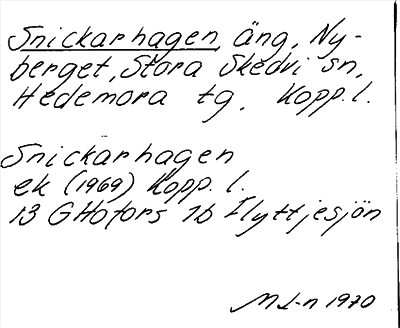 Snickarhagen, äng, Ny-
berget, Stora Skedvi sn,
Hedemora tg, Kopp. l.
Snickarhagen
ek (1969) Kopp. l.
13 G Hofors 1b Flyttjesjön
M L-n 1970